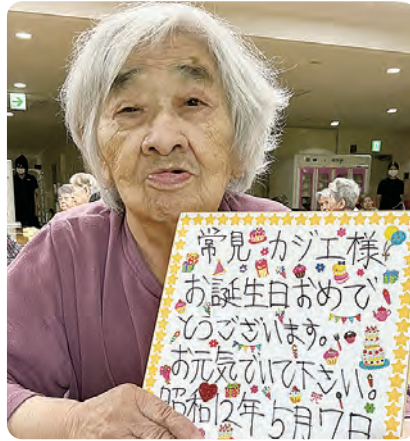 常見 カジエ様
お誕生日おめで
とうございます。
お元気でいて下さい。
昭和12年 5月7日